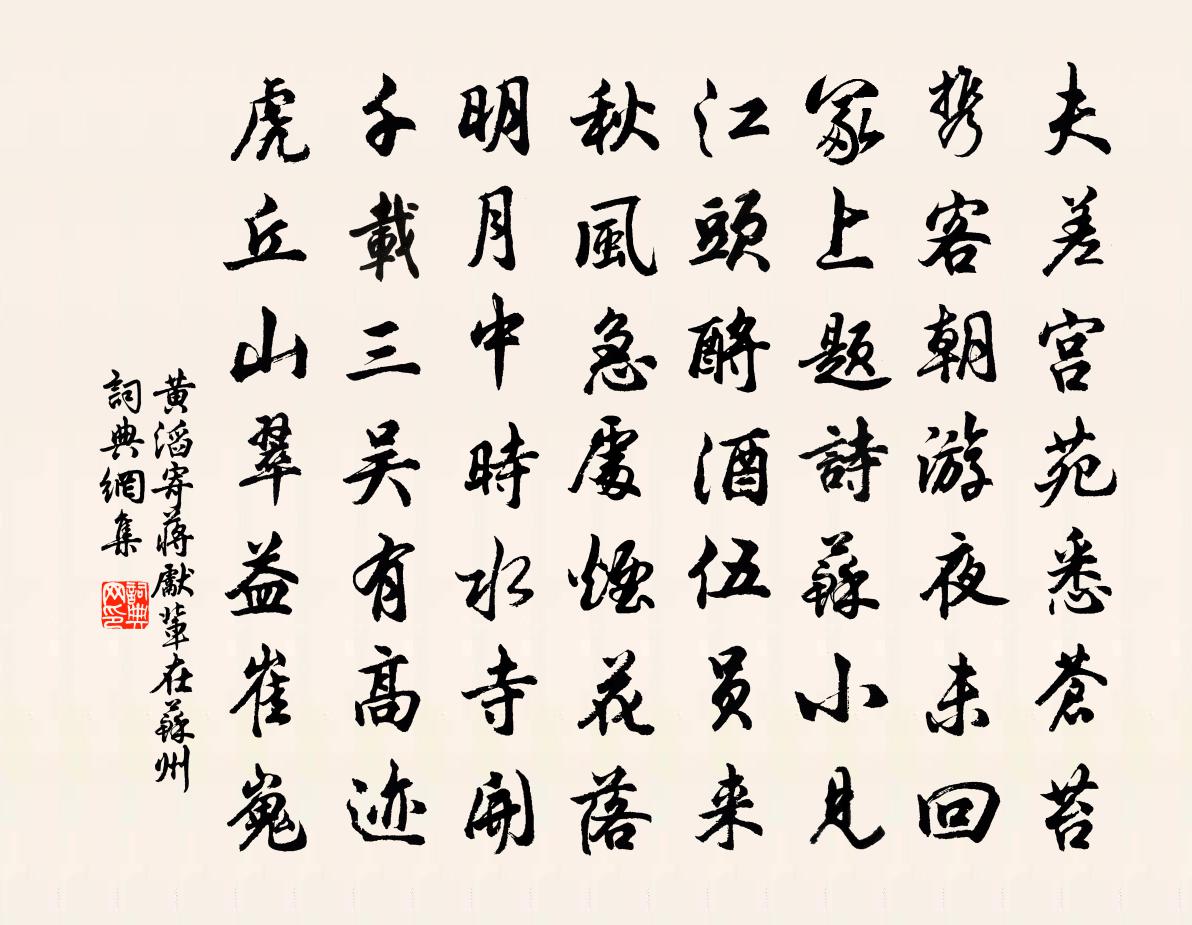 夫差宫苑悉蒼苔
携客朝游夜未回
冢上題詩蘇小見
江頭酹酒伍員来
秋風急處煙花落
明月中時水寺開
千載三吴有高迹
虎丘山翠益崔嵬
黄滔寄蔣獻輩在蘇州
詞典網集
詞典网印